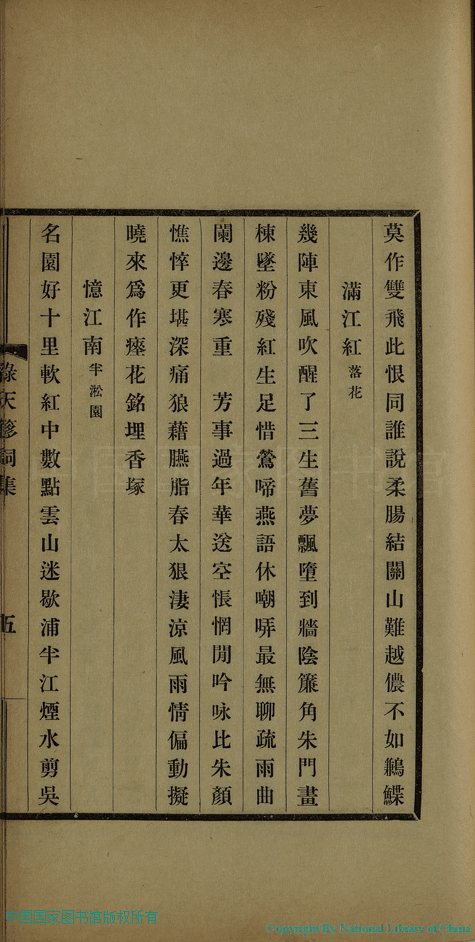 莫作雙飛此恨同誰說柔腸結關山難越儂不如鶼鰈
滿江紅 落花
幾陣東風吹醒了三生舊夢飄墮到牆陰簾角朱門畫
棟墜粉殘紅生足惜鶯啼燕語休嘲哢最無聊疏雨曲
闌邊春寒重　芳事過年華送空悵惘閒吟咏比朱顏
憔悴更堪深痛狼藉臙脂春太狠淒涼風雨情偏動擬
曉來爲作瘞花銘埋香塚
憶江南 半淞園
名園好十里軟紅中數點雲山迷歇浦半江煙水剪吳
淥天簃詞集
五
中国国家图书馆版权所有
Copyright By National Library of China